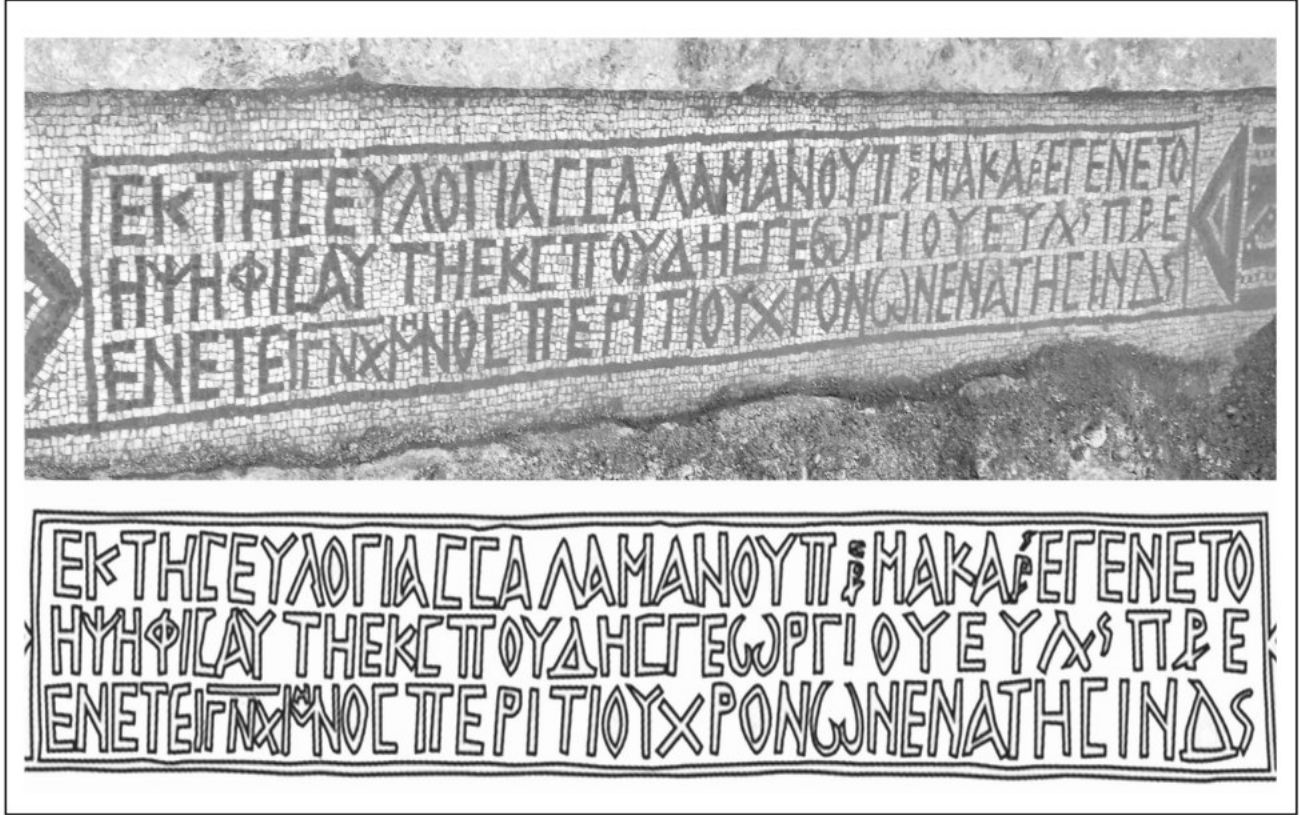 ΕΚΤΗCΕΥΛΟΓΙΑCCΑΛΑΜΑΝΟΥΠΡΕΜΑΚΑΡΕΓΕΝΕΤΟ
ΗΨΗΦΙCΑΥΤΗΕΚCΠΟΥΔΗCΓΕΩΡΓΙΟΥΕΥΛΑSΠΡΕ
ΕΝΕΤΕΙΓΝΧΜΗΝΟCΠΕΡΙΤΙΟΥΧΡΟΝΩΝΕΝΑΤΗCΙΝΔS
ΕΚΤΗCΕΥΛΟΓΙΑCCΑΛΑΜΑΝΟΥΠΡΕΜΑΚΑΡΕΓΕΝΕΤΟ
ΗΨΗΦΙCΑΥΤΗΕΚCΠΟΥΔΗCΓΕΩΡΓΙΟΥΕΥΛΑSΠΡΕ
ΕΝΕΤΕΙΓΝΧΜΗΝΟCΠΕΡΙΤΙΟΥΧΡΟΝΩΝΕΝΑΤΗCΙΝΔS